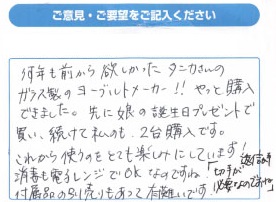 ご意見・ご要望をご記入ください
何年も前から欲しかったタニカさんの
ガラス製のヨーグルトメーカー!! やっと購入
できました。先に娘の誕生日プレゼントで
買い、続けて私のも、2台購入です。
これから使うのをとても楽しみにしています!
消毒も電子レンジでOKなのですね!
付属品の引売りもあって有難いです
返信用
切手が
必要なのですね